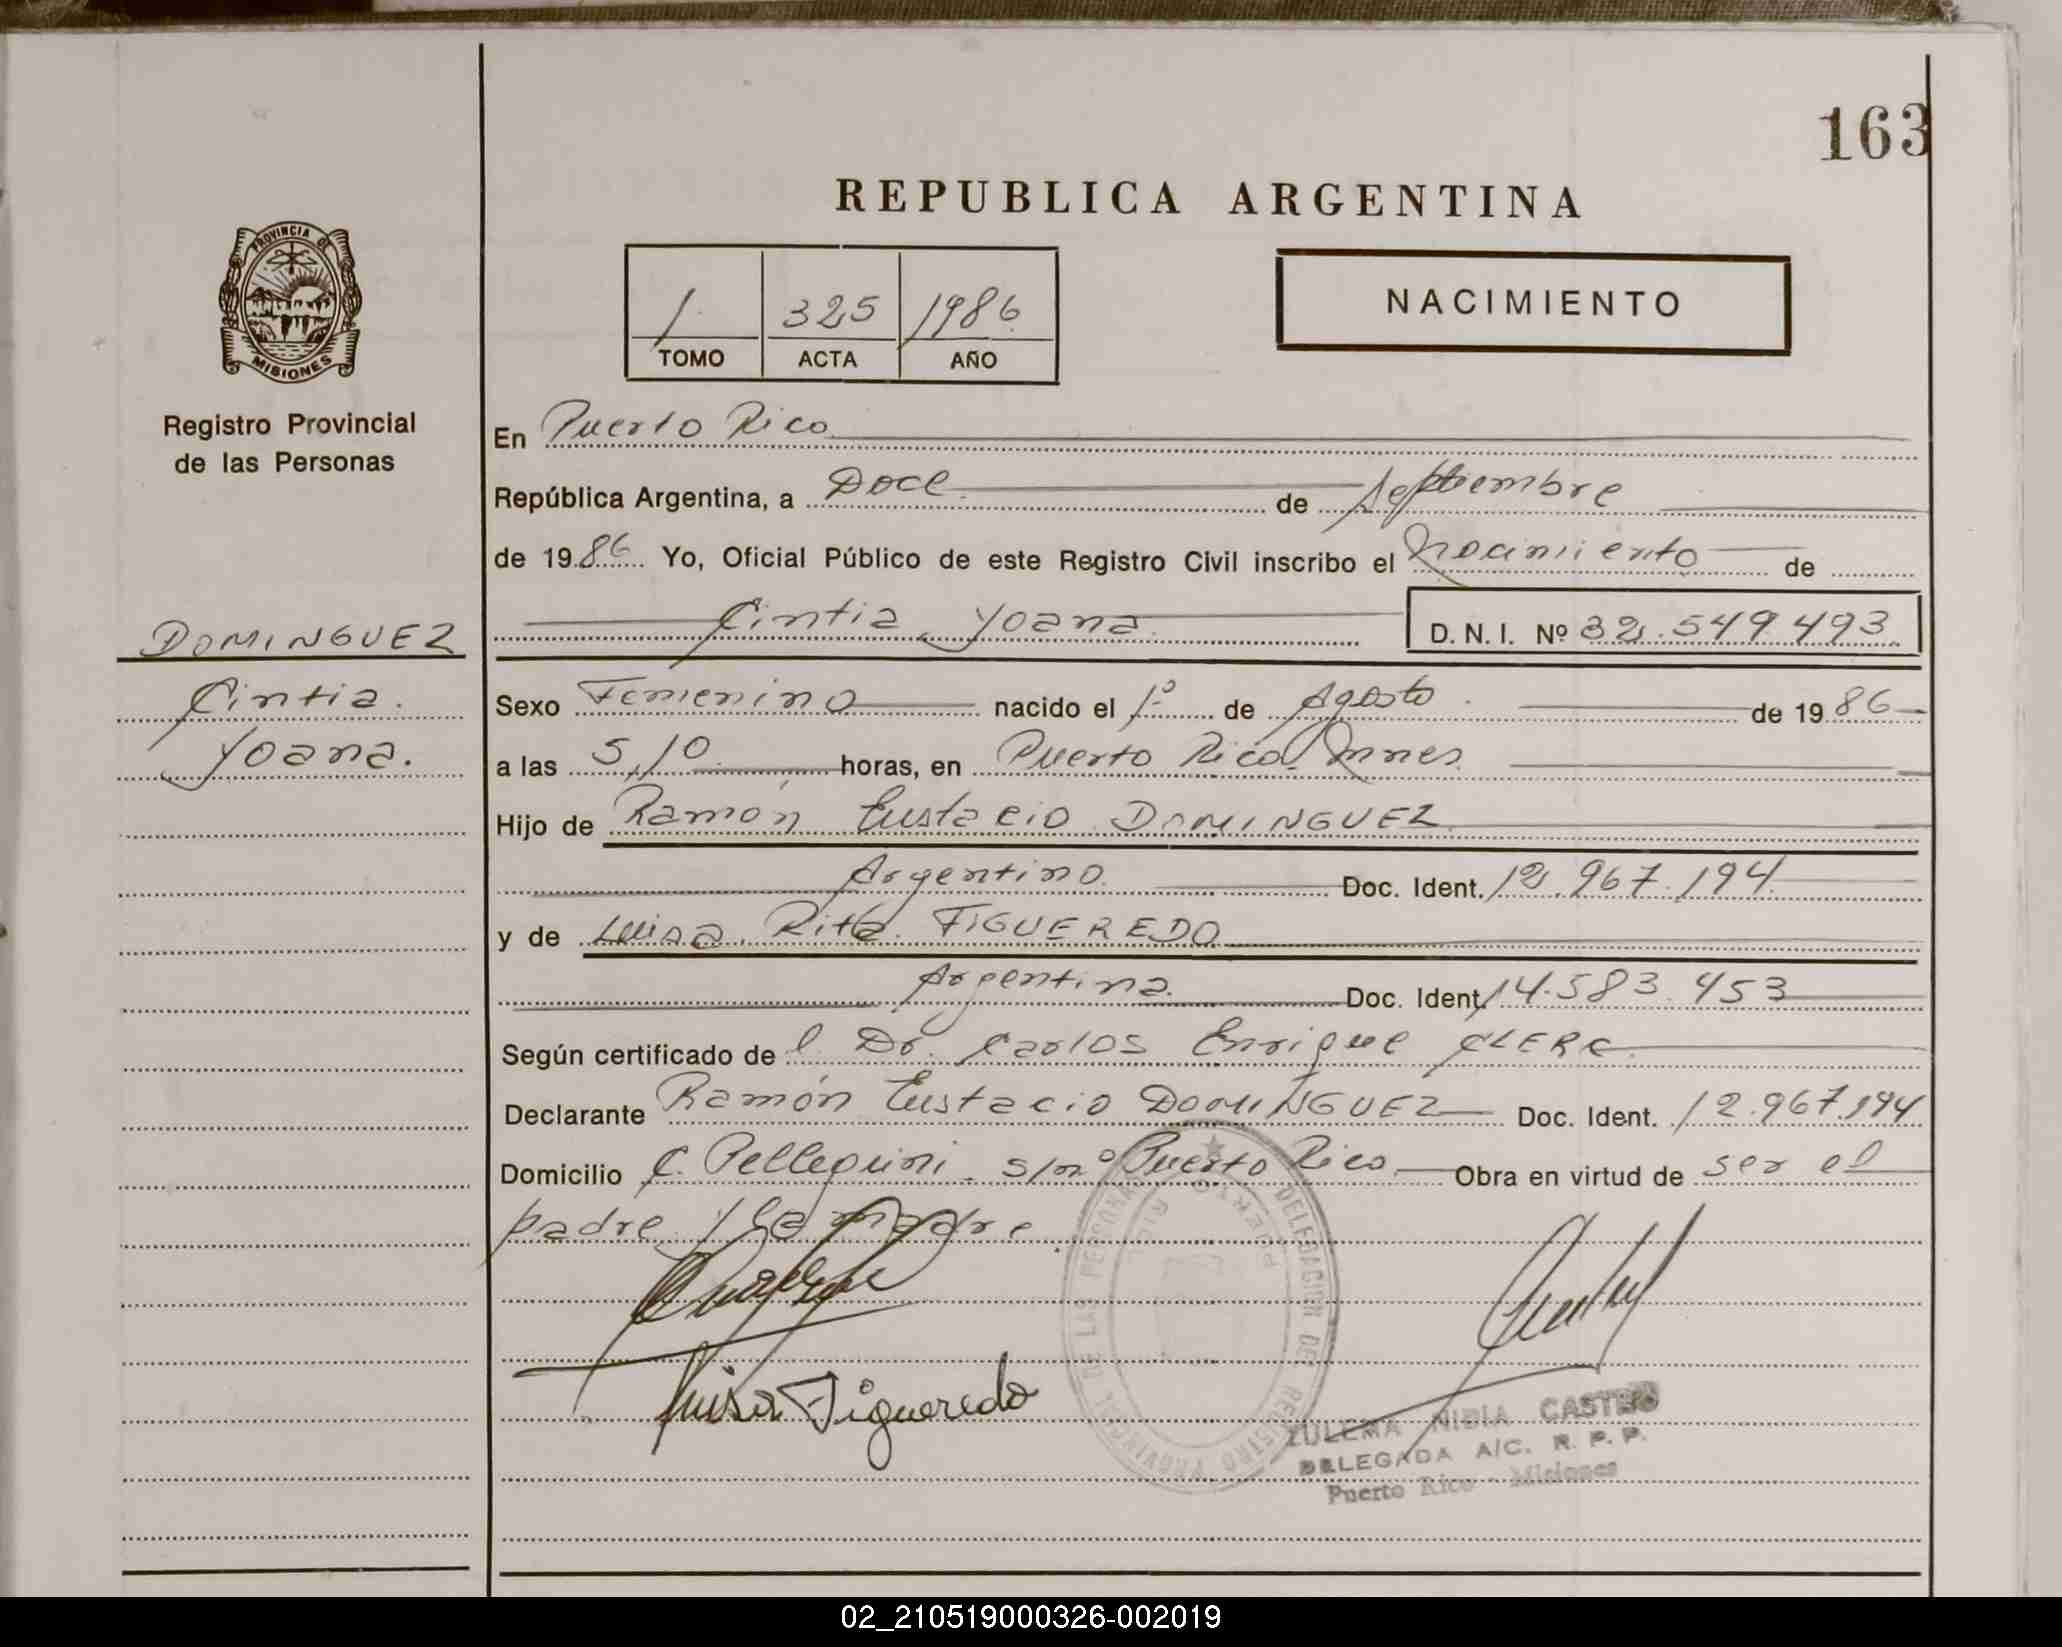 163
REPUBLICA ARGENTINA
PROVINCIA DE
MISIONES
Registro Provincial
de las Personas
1 325 1986
TOMO ACTA AÑO
NACIMIENTO
En Puerto Rico
República Argentina, a Doce de Septiembre
de 1986 Yo, Oficial Público de este Registro Civil inscribo el Nacimiento de
Cintia Yoana D.N.I. Nº 32.549.493
DOMINGUEZ
Cintia.
Yoana.
Sexo Femenino nacido el 1º de Agosto de 1986
a las 5,10 horas, en Puerto Rico. Mnes.
Hijo de Ramón Eustacio DOMINGUEZ
Argentino Doc. Ident. 12.967.194
y de Luisa Rita FIGUEREDO
Argentina. Doc. Ident. 14.583.453
Según certificado de l Dr. Carlos Enrique CLERC
Declarante Ramón Eustacio DOMINGUEZ Doc. Ident. 12.967.194
Domicilio C. Pellegrini s/nº Puerto Rico Obra en virtud de ser el
padre y la madre.
Luisa Figueredo
DELEGACION DEL REGISTRO PROVINCIAL DE LAS PERSONAS
PUERTO RICO
ZULEMA NIDIA CASTRO
DELEGADA A/C. R. P. P.
Puerto Rico - Misiones
02_210519000326-002019